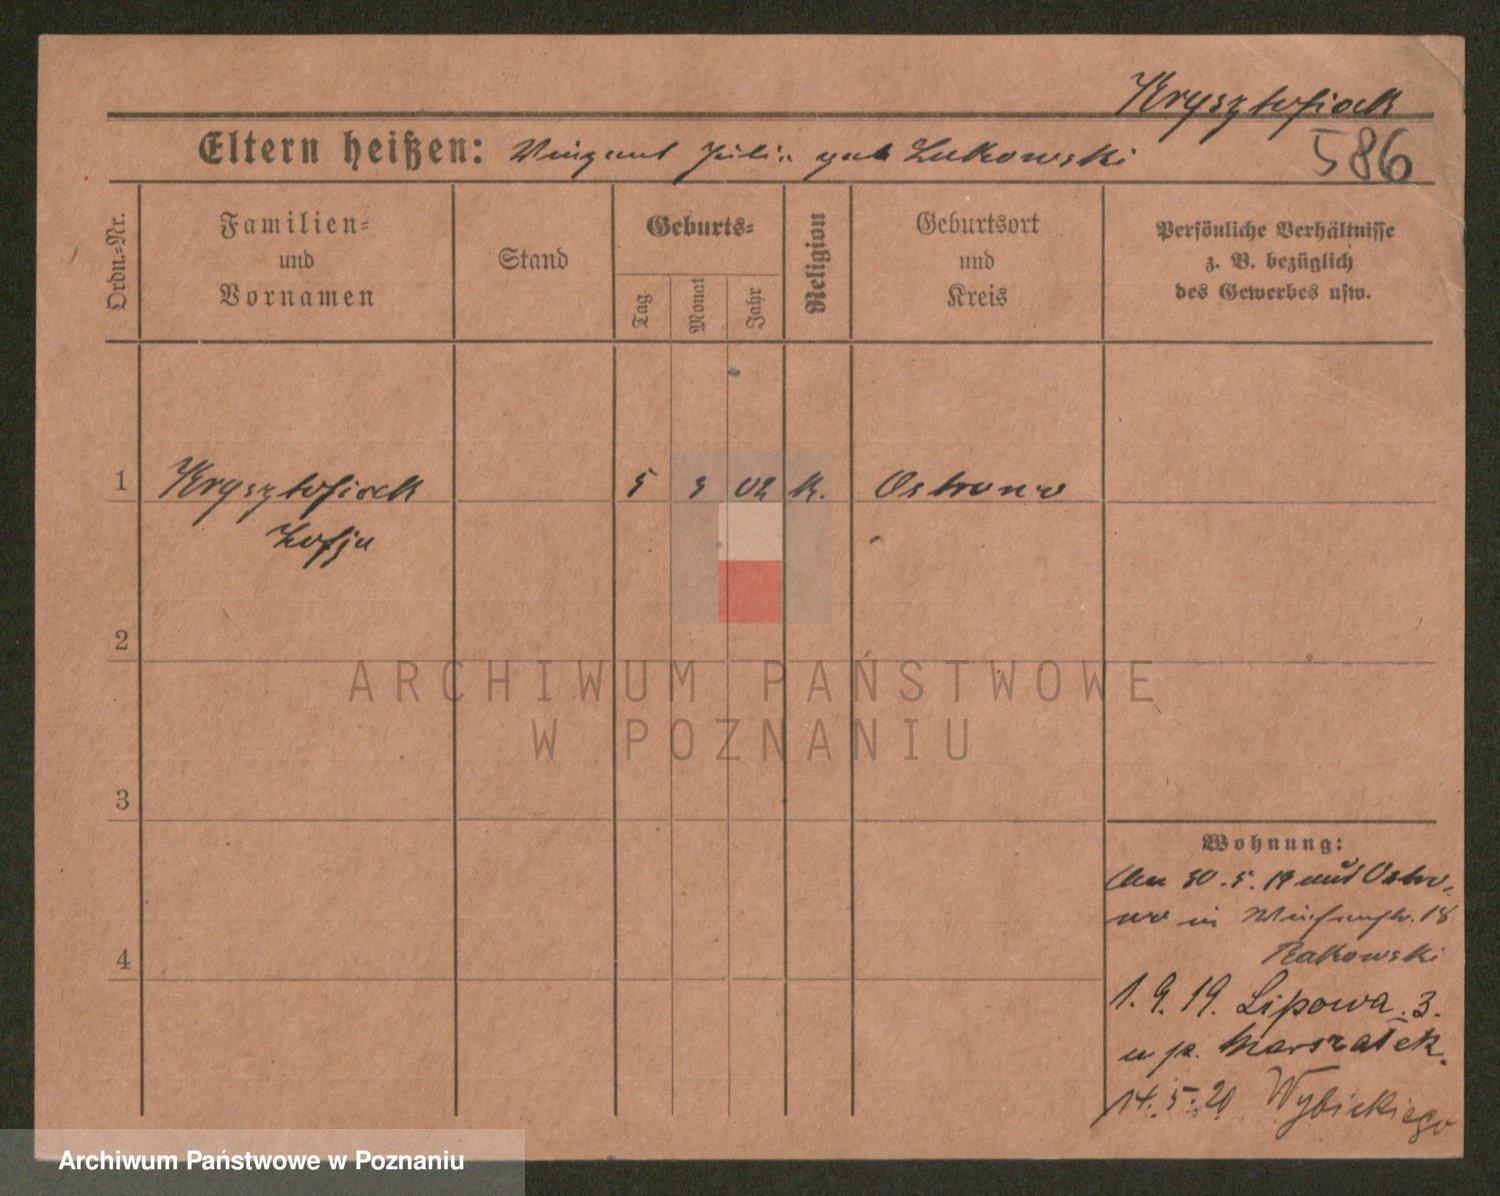 Krysztofiak
Eltern heißen: Vinzent Julia geb Lukowski
586
Ordn.-Nr.
Familien-
und
Vornamen
Stand
Geburts-
Tag
Monat
Jahr
Religion
Geburtsort
und
Kreis
Persönliche Verhältnisse
z. B. bezüglich
des Gewerbes usw.
1 Krysztofiak 5 3 02 K. Ostrowo
Zofja
2
3
4
Wohnung:
Am 30.5.19 aus Ostro-
wo in 18
Rakowski
1.9.19. Lipowa 3.
u p. Marszałek.
14.5.20 Wybickiego
ARCHIWUM PAŃSTWOWE
W POZNANIU
Archiwum Państwowe w Poznaniu